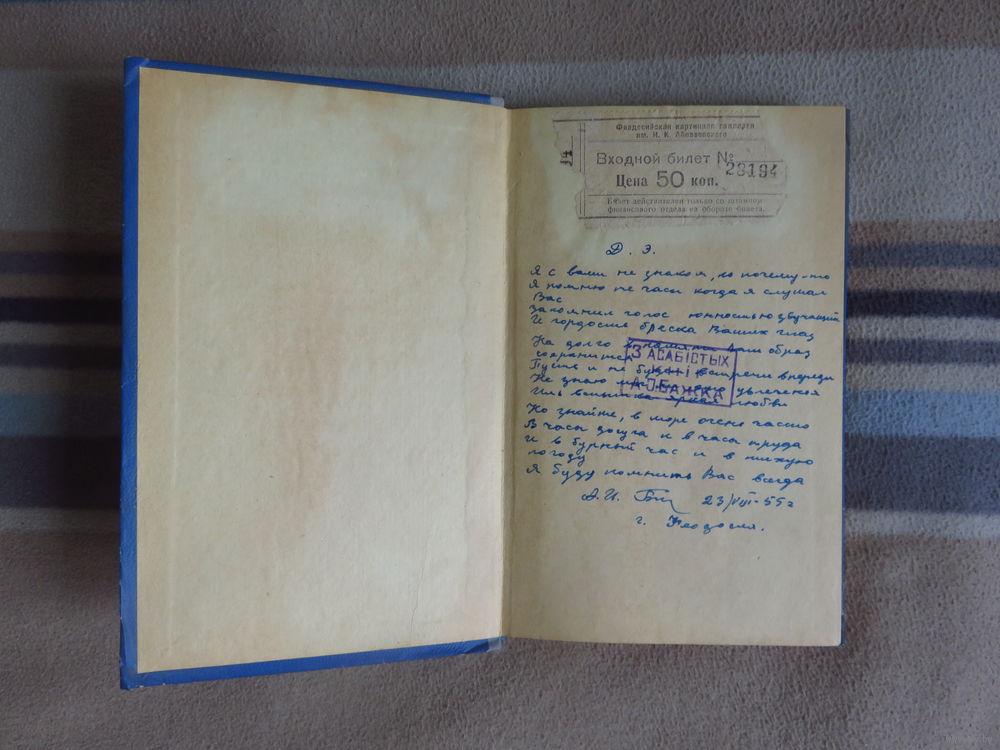 Феодосийская картинная галлерея
им. И. К. Айвазовского
Входной билет №
28194
Цена 50 коп.
Билет действителен только со штампом
финансового отдела на обороте билета.
Д. Э.
Я с вами не знаком, но почему-то
Я помню те часы когда я слушал
Вас
Запомнил голос юнностью звучащий
И гордости блеска Ваших глаз
На долго в памяти Ваш образ
сохранится
Пусть и не будет встречи впереди
Не знаю увлеченья
Иль вспышка яркая любви
Но знайте, в море очень часто
В часы досуга и в часы труда
И в бурный час и в тихую
погоду
Я буду помнить Вас всегда
А.И. 23/VIII-55г
г. Феодосия.
З АСАБІСТЫХ
КНІГ